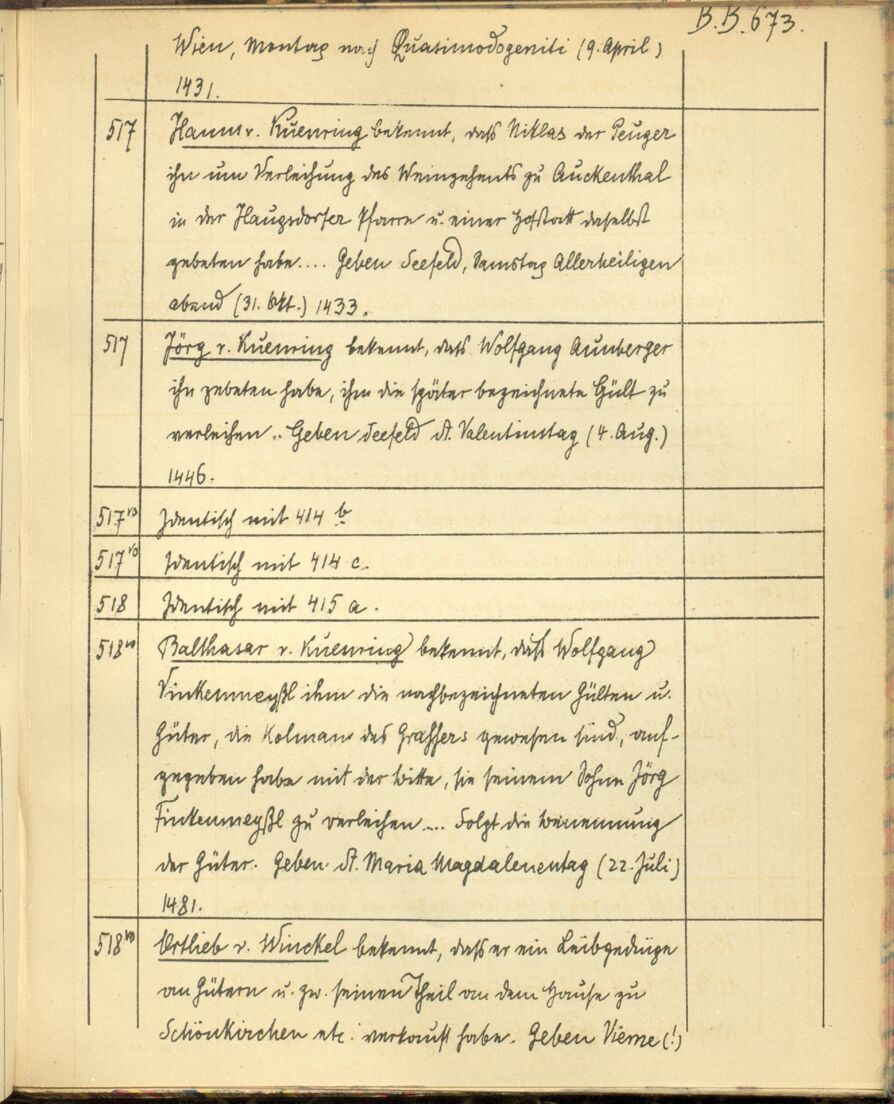 B.B. 673.
Wien, Montag nach Quasimodogeniti (9. April)
1431.
517 Hanns v. Kuenring bekennt, dass Niklas der Peuger
ihn um Verleihung des Weinzehents zu Auckenthal
in der Haugsdorfer Pfarre u. einer Hofstatt daselbst
gebeten habe.... Geben Seefeld, Samstag Allerheiligen
abend (31. Okt.) 1433.
517 Jörg v. Kuenring bekennt, dass Wolfgang Aunberger
ihn gebeten habe, ihm die später bezeichnete Gült zu
verleihen .. Geben Seefeld St. Valentinstag (4. Aug.)
1446.
517 vo Identisch mit 414 b
517 vo Identisch mit 414 c.
518 Identisch mit 415 a.
518 vo Balthasar v. Kuenring bekennt, dass Wolfgang
Vinkenmeyßl ihm die nachbezeichneten Gülten u.
Güter, die Kolman des Grassers gewesen sind, auf-
gegeben habe mit der Bitte, sie seinem Sohne Jörg
Finkenmeyßl zu verleihen.... Folgt die Benennung
der Güter. Geben St. Maria Magdalenentag (22. Juli)
1481.
518 vo Ortlieb v. Winckel bekennt, dass er ein Leibgedinge
an Gütern u. zw. seinen Theil an dem Hause zu
Schönkirchen etc. verkauft habe. Geben Vienne (!)